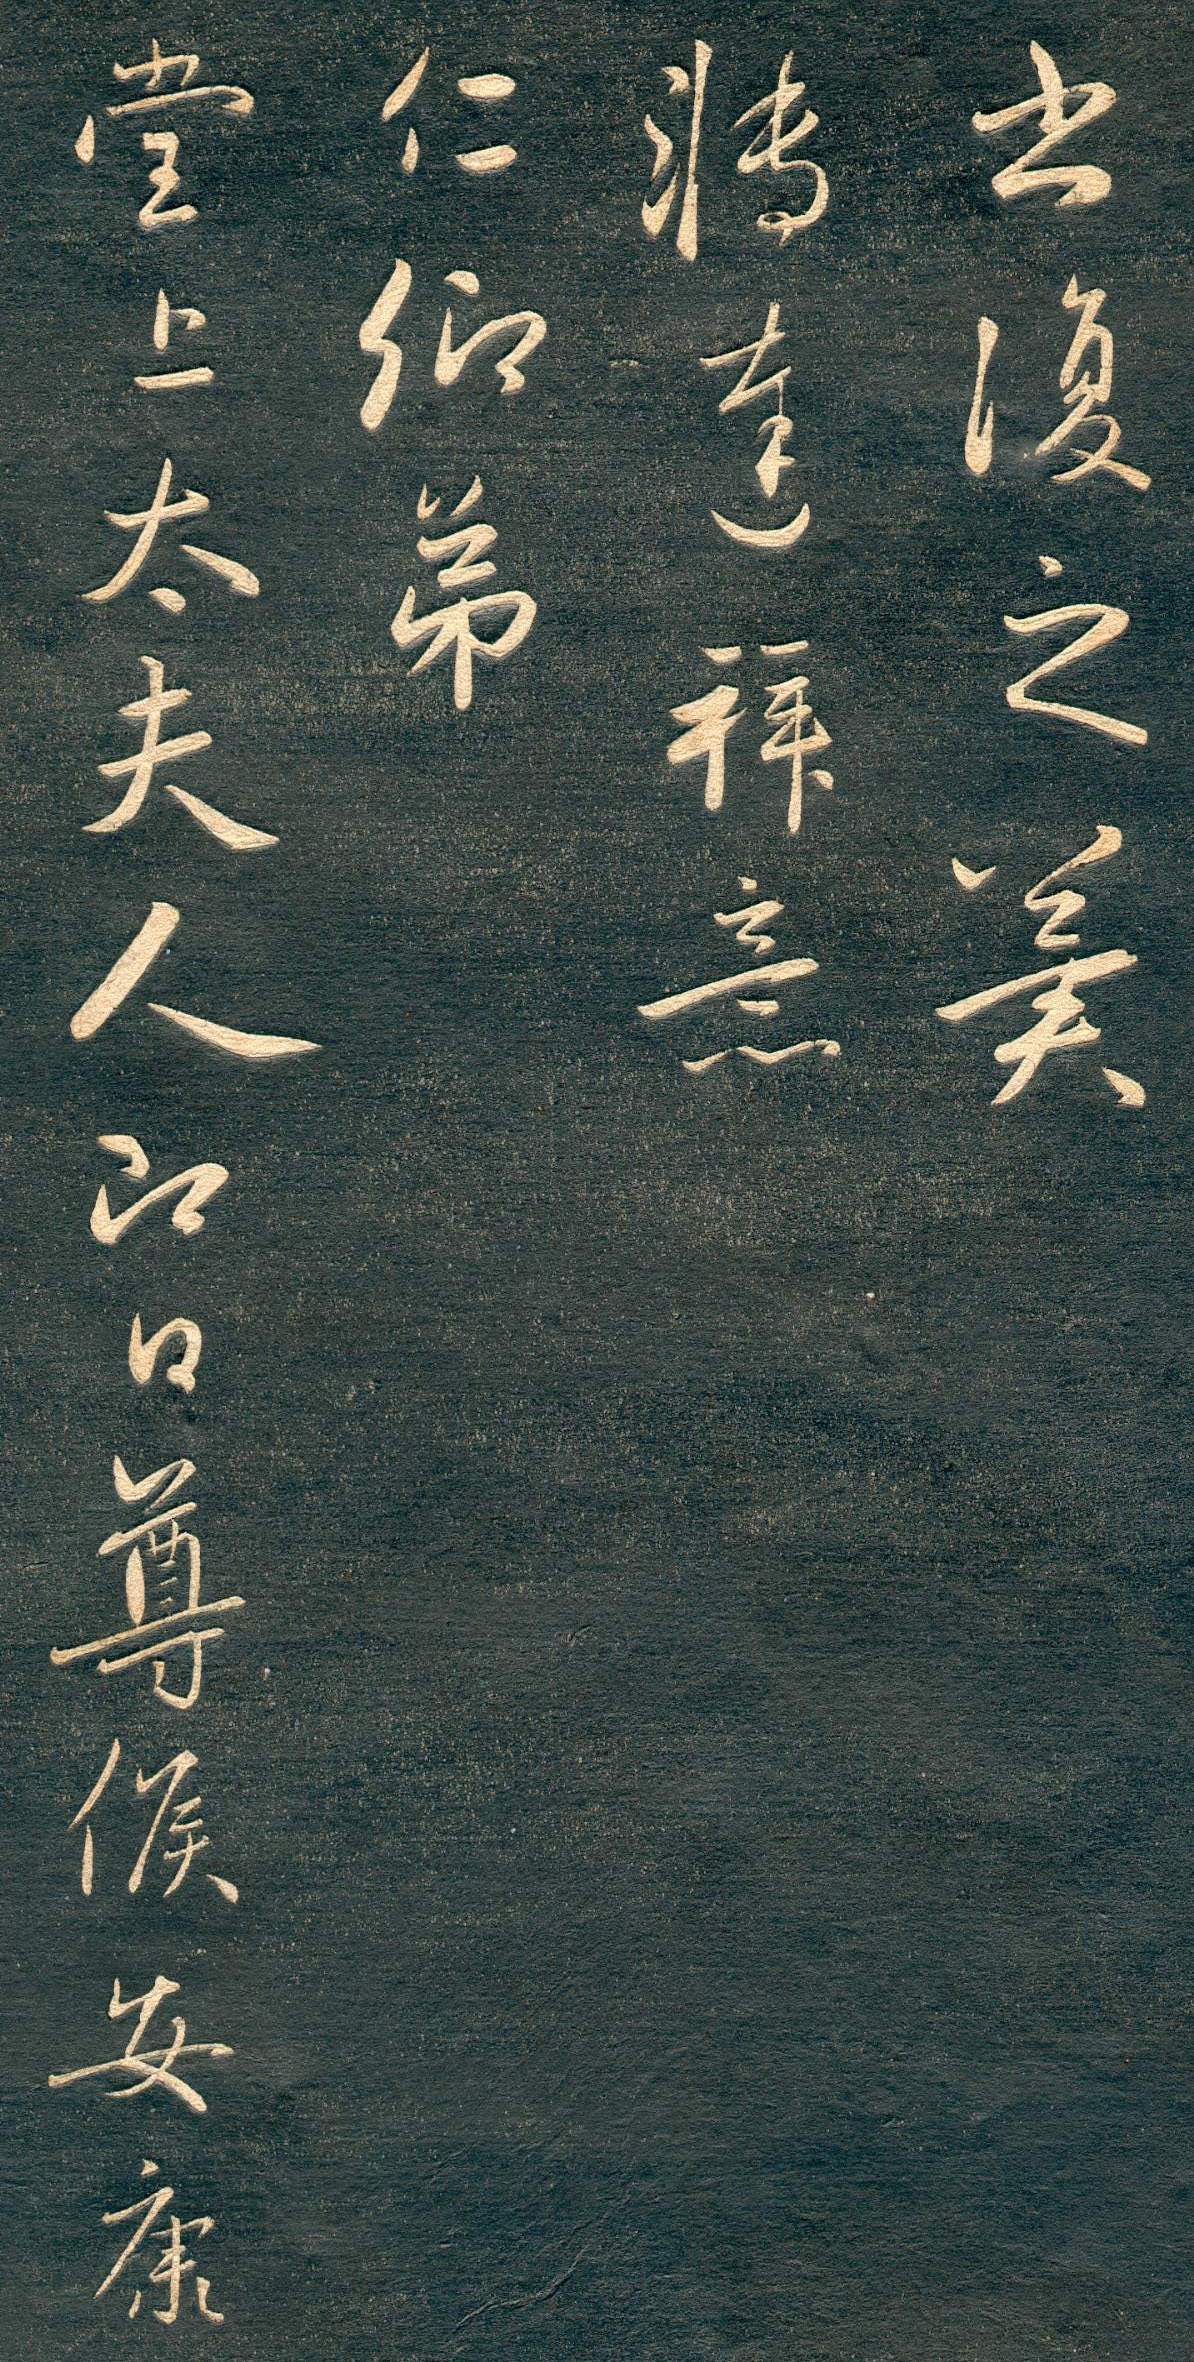 出復之美
將達禪意
仁卿弟
堂上太夫人即日尊候安康